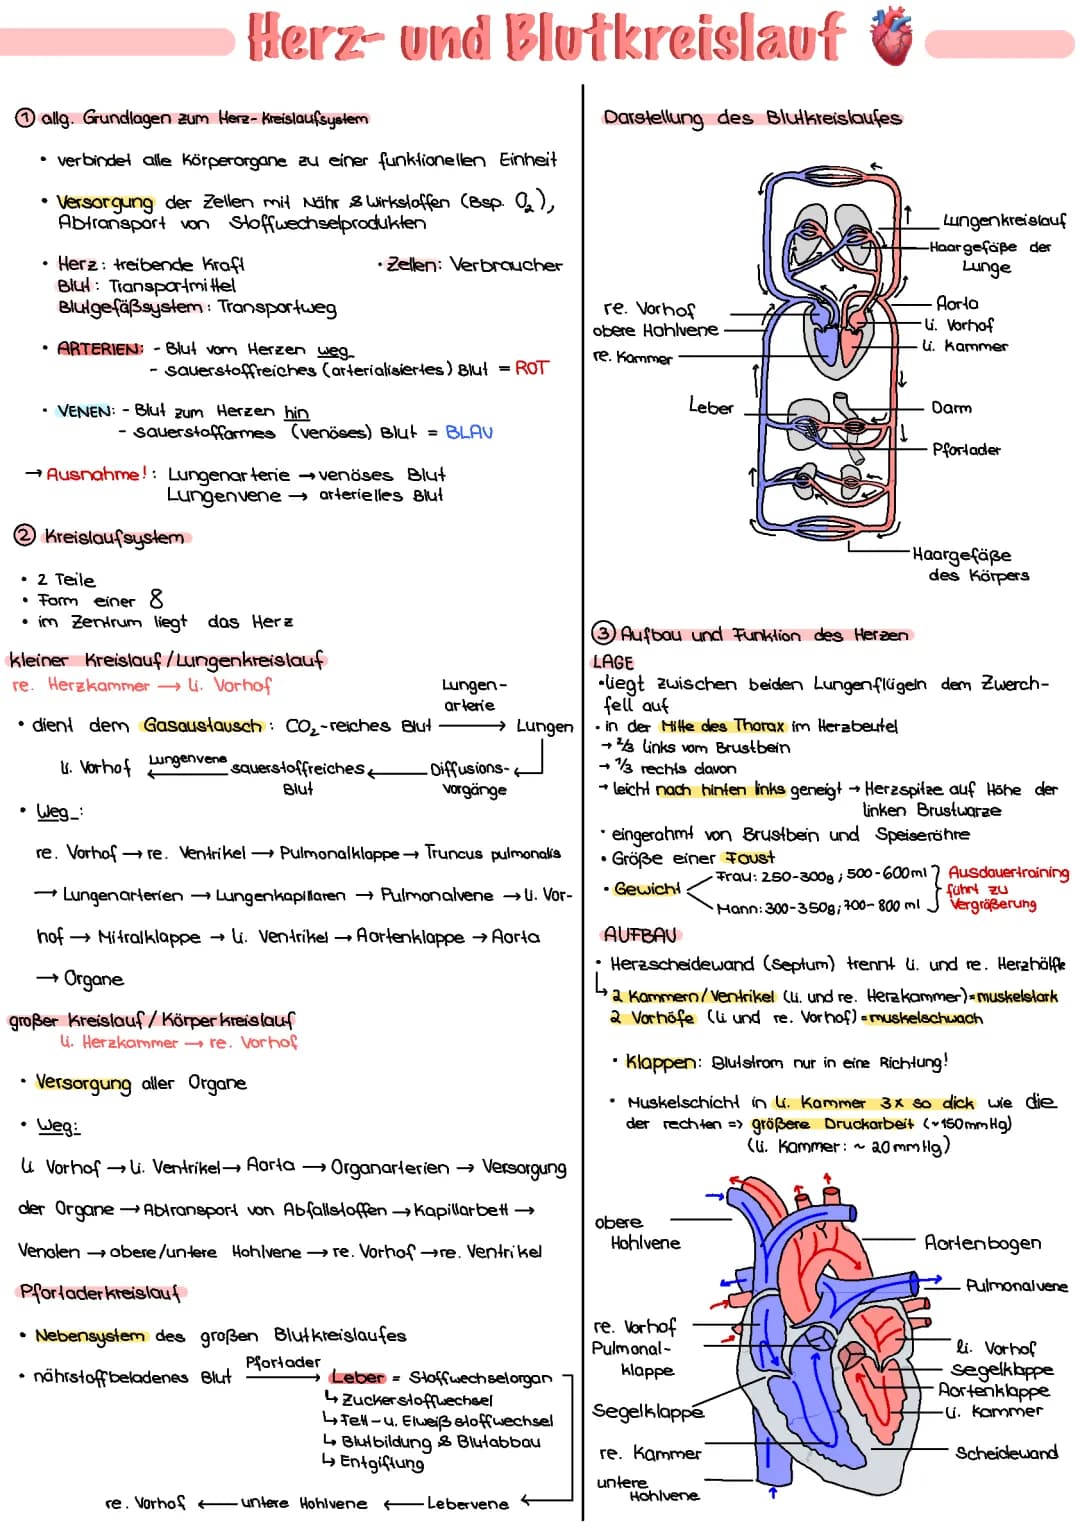 Herz- und Blutkreislauf
① allg. Grundlagen zum Herz-Kreislaufsystem
• verbindet alle Körperorgane zu einer funktionellen Einheit
• Versorgung der Zellen mit Nähr & Wirkstoffen (Bsp. O₂),
Abtransport von Stoffwechselprodukten
• Herz: treibende Kraft
• Zellen: Verbraucher
Blut: Transportmittel
Blutgefäßsystem: Transportweg
• ARTERIEN: - Blut vom Herzen weg
- sauerstoffreiches (arterialisiertes) Blut = ROT
• VENEN: - Blut zum Herzen hin
- sauerstoffarmes (venöses) Blut = BLAU
→ Ausnahme!: Lungenarterie → venöses Blut
Lungenvene → arterielles Blut
② Kreislaufsystem
• 2 Teile
• Form einer 8
• im Zentrum liegt das Herz
kleiner Kreislauf/Lungenkreislauf
re. Herzkammer → li. Vorhof
• dient dem Gasaustausch: CO₂-reiches Blut
Lungen-
arterie
→ Lungen
li. Vorhof ← Lungenvene sauerstoffreiches ← Diffusions- ←
Blut vorgänge
• Weg:
re. Vorhof → re. Ventrikel → Pulmonalklappe → Truncus pulmonalis
→ Lungenarterien → Lungenkapillaren → Pulmonalvene → li. Vor-
hof → Mitralklappe → li. Ventrikel → Aortenklappe → Aorta
→ Organe
großer Kreislauf/Körperkreislauf
li. Herzkammer → re. Vorhof
• Versorgung aller Organe
• Weg:
li Vorhof → li. Ventrikel → Aorta → Organarterien → Versorgung
der Organe → Abtransport von Abfallstoffen → Kapillarbett →
Venolen → obere/untere Hohlvene → re. Vorhof → re. Ventrikel
Pfortaderkreislauf
• Nebensystem des großen Blutkreislaufes
• nährstoffbeladenes Blut Pfortader → Leber = Stoffwechselorgan
↳ Zuckerstoffwechsel
↳ Fett-u. Eiweißstoffwechsel
↳ Blutbildung & Blutabbau
↳ Entgiftung
re. Vorhof ← untere Hohlvene ← Lebervene ←
Darstellung des Blutkreislaufes
Lungenkreislauf
Haargefäße der
Lunge
re. Vorhof
obere Hohlvene
re. Kammer
Aorta
li. Vorhof
li. Kammer
Leber
Darm
Pfortader
Haargefäße
des Körpers
③ Aufbau und Funktion des Herzen
LAGE
• liegt zwischen beiden Lungenflügeln dem Zwerch-
fell auf
• in der Mitte des Thorax im Herzbeutel
→ 2/3 links vom Brustbein
→ 1/3 rechts davon
→ leicht nach hinten links geneigt → Herzspitze auf Höhe der
linken Brustwarze
• eingerahmt von Brustbein und Speiseröhre
• Größe einer Faust
• Gewicht
Frau: 250-300g; 500-600ml
Mann: 300-350g; 700-800 ml
Ausdauertraining
führt zu
Vergrößerung
AUFBAU
• Herzscheidewand (Septum) trennt li. und re. Herzhälfte
↳ 2 Kammern/Ventrikel (li. und re. Herzkammer) = muskelstark
2 Vorhöfe (li und re. Vorhof) = muskelschwach
• Klappen: Blutstrom nur in eine Richtung!
• Muskelschicht in li. Kammer 3x so dick wie die
der rechten => größere Druckarbeit (~150mmHg)
(li. Kammer: ~ 20mmHg)
obere
Hohlvene
Aortenbogen
Pulmonalvene
re. Vorhof
Pulmonal-
klappe
li. Vorhof
Segelklappe
Aortenklappe
li. Kammer
Segelklappe
re. Kammer
Scheidewand
untere
Hohlvene